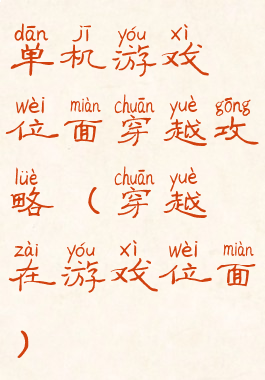 dān jī yóu xì
单机游戏
wèi miàn chuān yuè gōng
位面穿越攻
lüè chuān yuè
略（穿越
zài yóu xì wèi miàn
在游戏位面
）